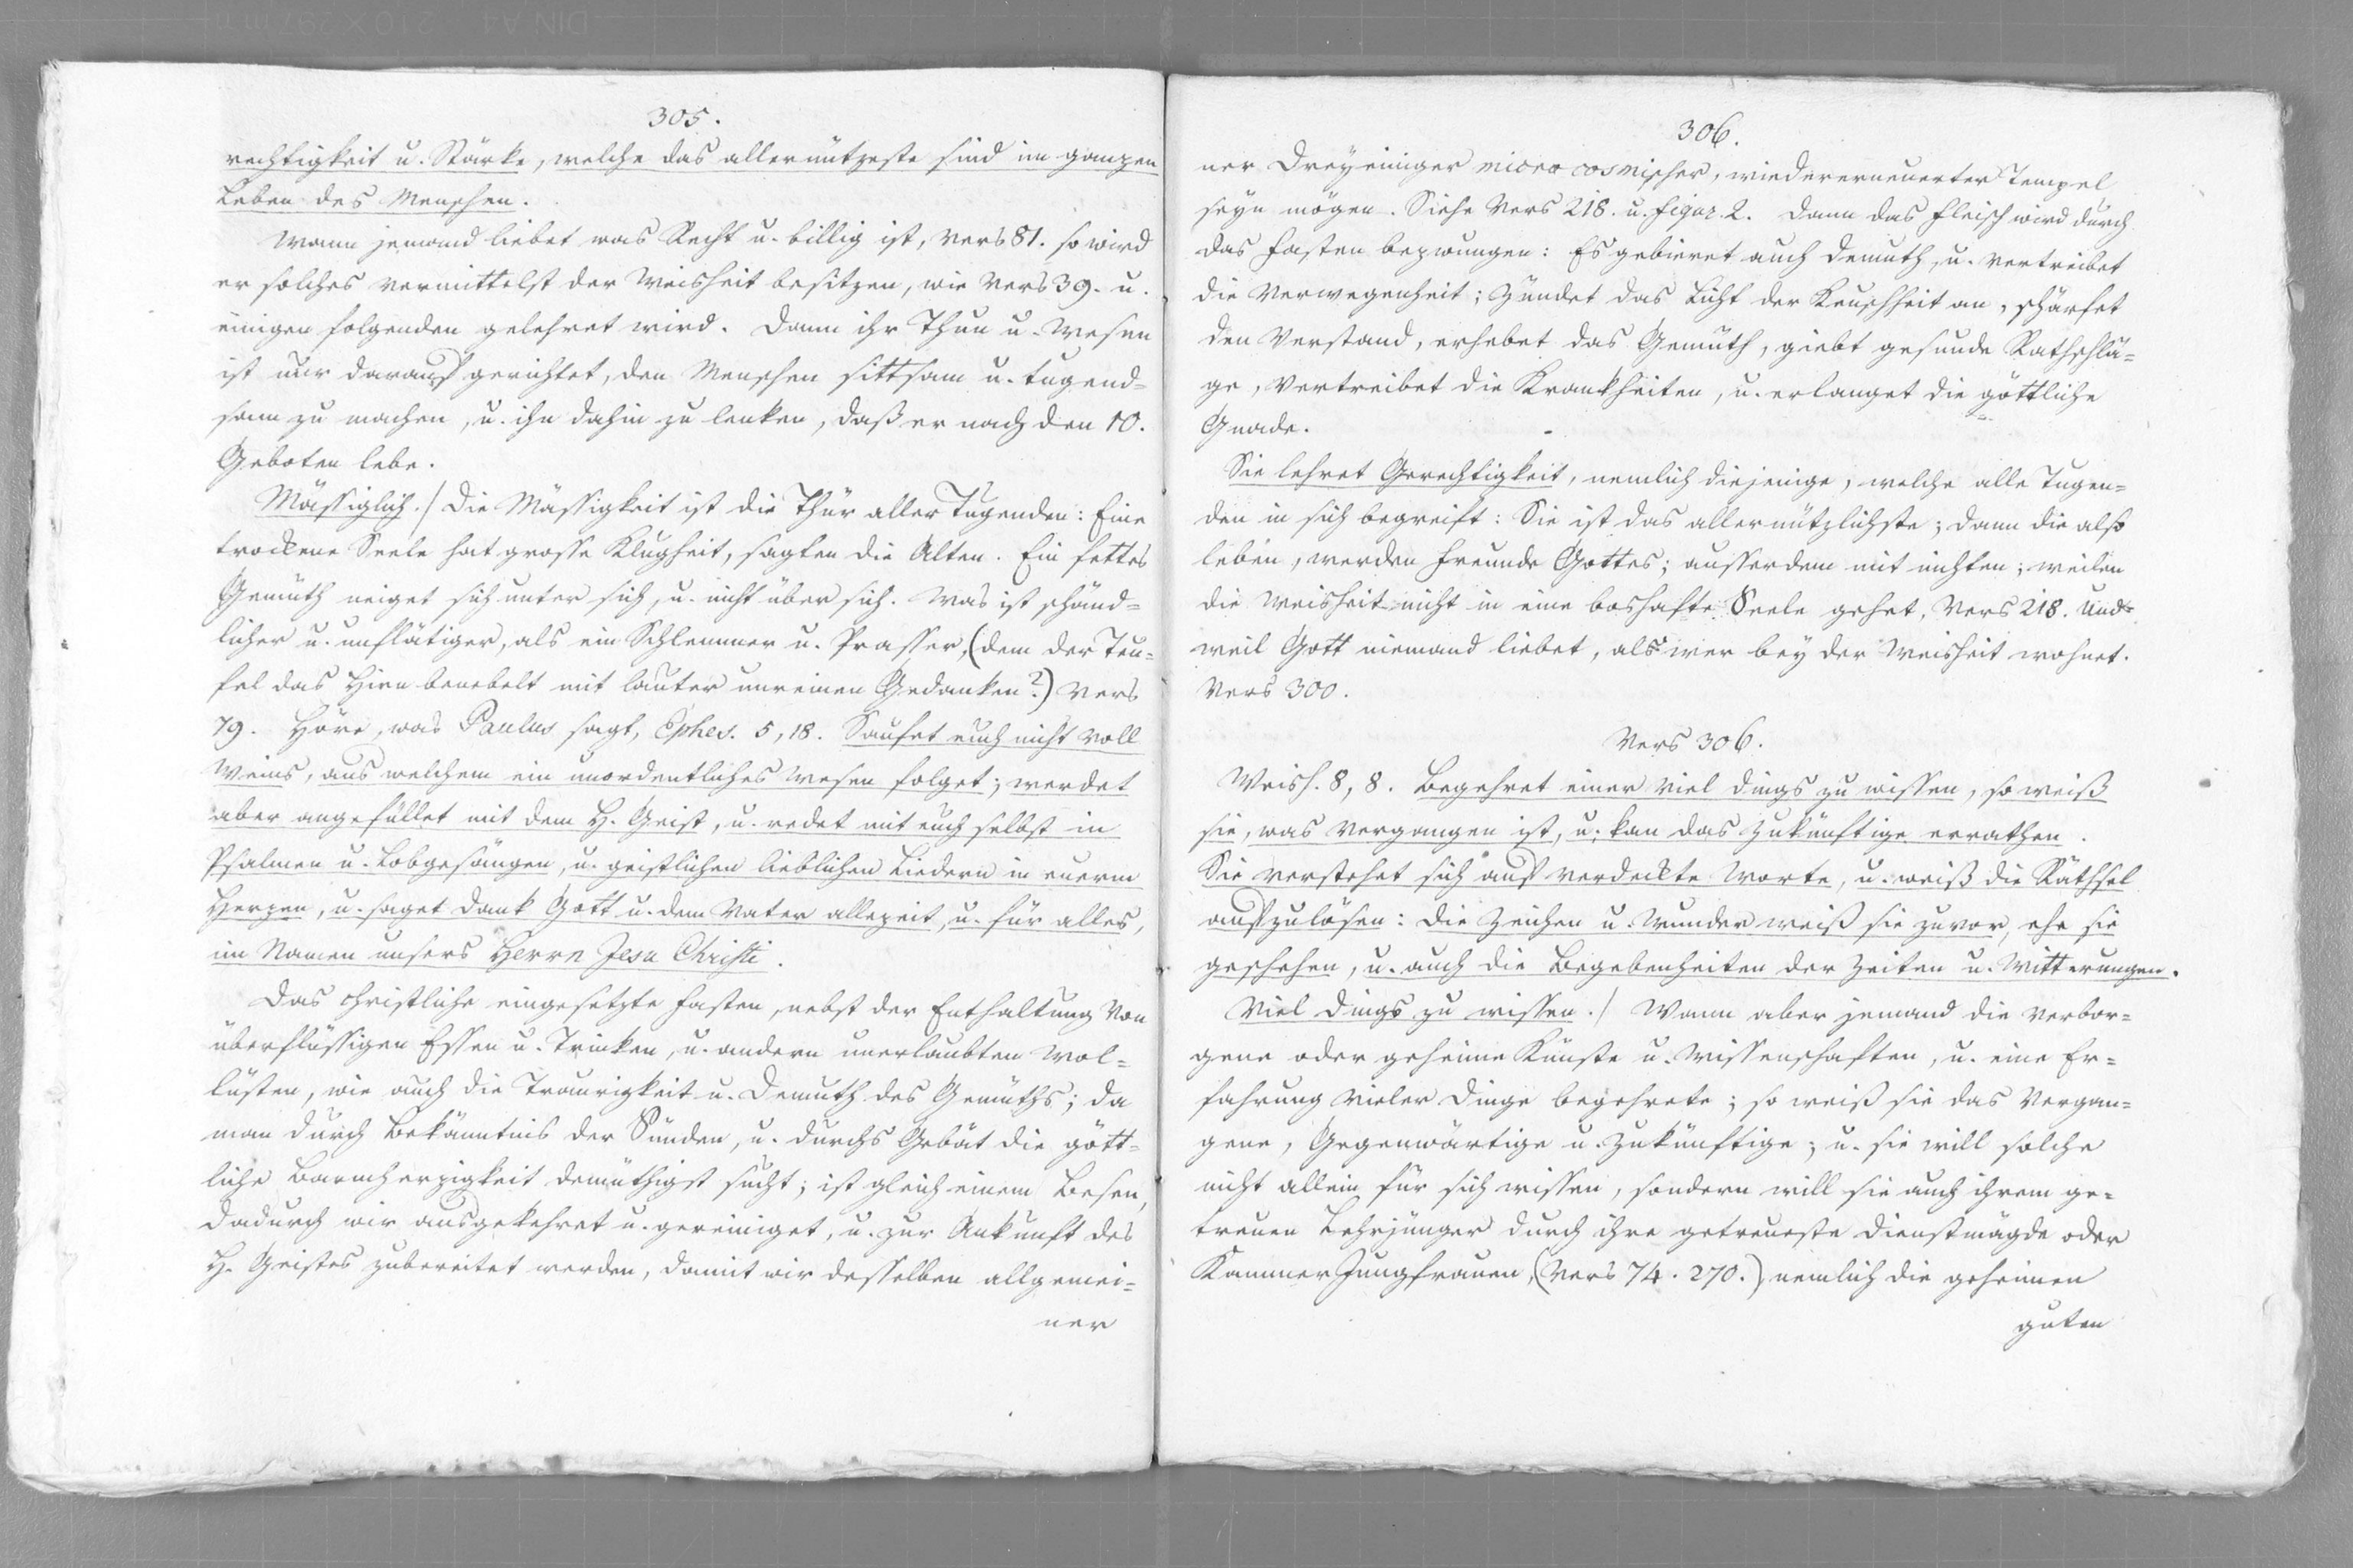 305.
rechtigkeit u. Stärke, welche das allernützeste sind im ganzen
Leben des Menschen.
Wann jemand liebet was Recht u. billig ist, Vers 81. so wird
er solches vermittelst der Weisheit besitzen, wie Vers 39. u.
einigen folgenden gelehret wird. Dann ihr Thun u. Wesen
ist nur darauf gerichtet, den Menschen sittsam u. tugend=
sam zu machen, u. ihn dahin zu lenken, daß er nach den 10.
Geboten lebe.
Mässiglich./ Die Mässigkeit ist die Thür aller Tugenden: Eine
trockene Seele hat grosse Klugheit, sagten die Alten. Ein fettes
Gemüth neiget sich unter sich, u. nicht über sich. Was ist schänd=
licher u. unflätiger, als ein Schlemmer u. Prasser, (dem der Teu=
fel das Hirn benebelt mit lauter unreinen Gedanken?) Vers
79. Höre, was Paulus sagt, Ephes. 5, 18. Saufet euch nicht voll
Weins, aus welchem ein unordentliches Wesen folget; werdet
aber angefüllet mit dem H. Geist, u. redet mit euch selbst in
Psalmen u. Lobgesängen, u. geistlichen lieblichen Liedern in euerm
Herzen, u. saget Dank Gott u. dem Vater allezeit, u. für alles,
im Namen unsers Herrn Jesu Christi.
Das christliche eingesetzte Fasten, nebst der Enthaltung von
überflüssigen Essen u. Trinken, u. andern unerlaubten Wol=
lüsten, wie auch die Traurigkeit u. Demuth des Gemüths; da
man durch Bekänntnis der Sünden, u. durchs Gebät die gött=
liche Barmherzigkeit demüthigst sucht; ist gleich einem Besen,
dadurch wir ausgekehret u. gereiniget, u. zur Ankunft des
H. Geistes zubereitet werden, damit wir desselben allgemei=
ner
306.
ner Dreyeiniger microcosmischer, wiedererneuerter Tempel
seyn mögen. Siehe Vers 218. u. Figur. 2. Dann das Fleisch wird durch
das Fasten bezwungen: Es gebieret auch Demuth, u. vertreibet
die Verwegenheit; zündet das Licht der Keuschheit an, schärfet
den Verstand, erhebet das Gemüth, giebt gesunde Rathschlä=
ge, vertreibet die Krankheiten, u. erlanget die göttliche
Gnade.
Sie lehret Gerechtigkeit, nemlich diejenige, welche alle Tugen=
den in sich begreift: Sie ist das allernützlichste; dann die also
leben, werden Freunde Gottes; ausserdem mit nichten; weilen
die Weisheit nicht in eine boshafte Seele gehet, Vers 218. Und
weil Gott niemand liebet, als wer bey der Weisheit wohnet.
Vers 300.
Vers 306.
Weish. 8, 8. Begehret einer viel Dings zu wissen, so weiß
sie, was vergangen ist, u. kan das Zukünftige errathen.
Sie verstehet sich auf verdeckte Worte, u. weiß die Räthsel
aufzulösen: Die Zeichen u. Wunder weiß sie zuvor, ehe sie
geschehen, u. auch die Begebenheiten der Zeiten u. Witterungen.
Viel Dings zu wissen./ Wann aber jemand die verbor=
gene oder geheime Künste u. Wissenschaften, u. eine Er=
fahrung vieler Dinge begehrete; so weiß sie das Vergan=
gene, Gegenwärtige u. Zukünftige; u. sie will solche
nicht allein für sich wissen, sondern will sie auch ihrem ge=
treuen Lehrjünger durch ihre getreueste Dienstmägde oder
Kammer Jungfrauen, (Vers 74. 270.) nemlich die geheimen
guten